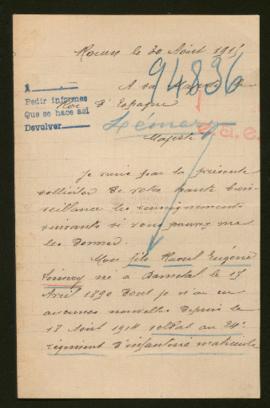 Rouen le 20 Août 1915
94836
A sa Majesté
Roi d'Espagne
A
Pedir informes
Que se hace así
Devolver
Majesté
je viens par la présente
solliciter de votre haute bien-
veillance les renseignements
suivants si vous pouvez me
les donner.
Mon fils Raoul Eugène
né a Darnetal le 15
Avril 1890 dont je n'ai eu
aucunes nouvelles depuis le
18 Août 1914 soldat au 24e
régiment d'infanterie matricule